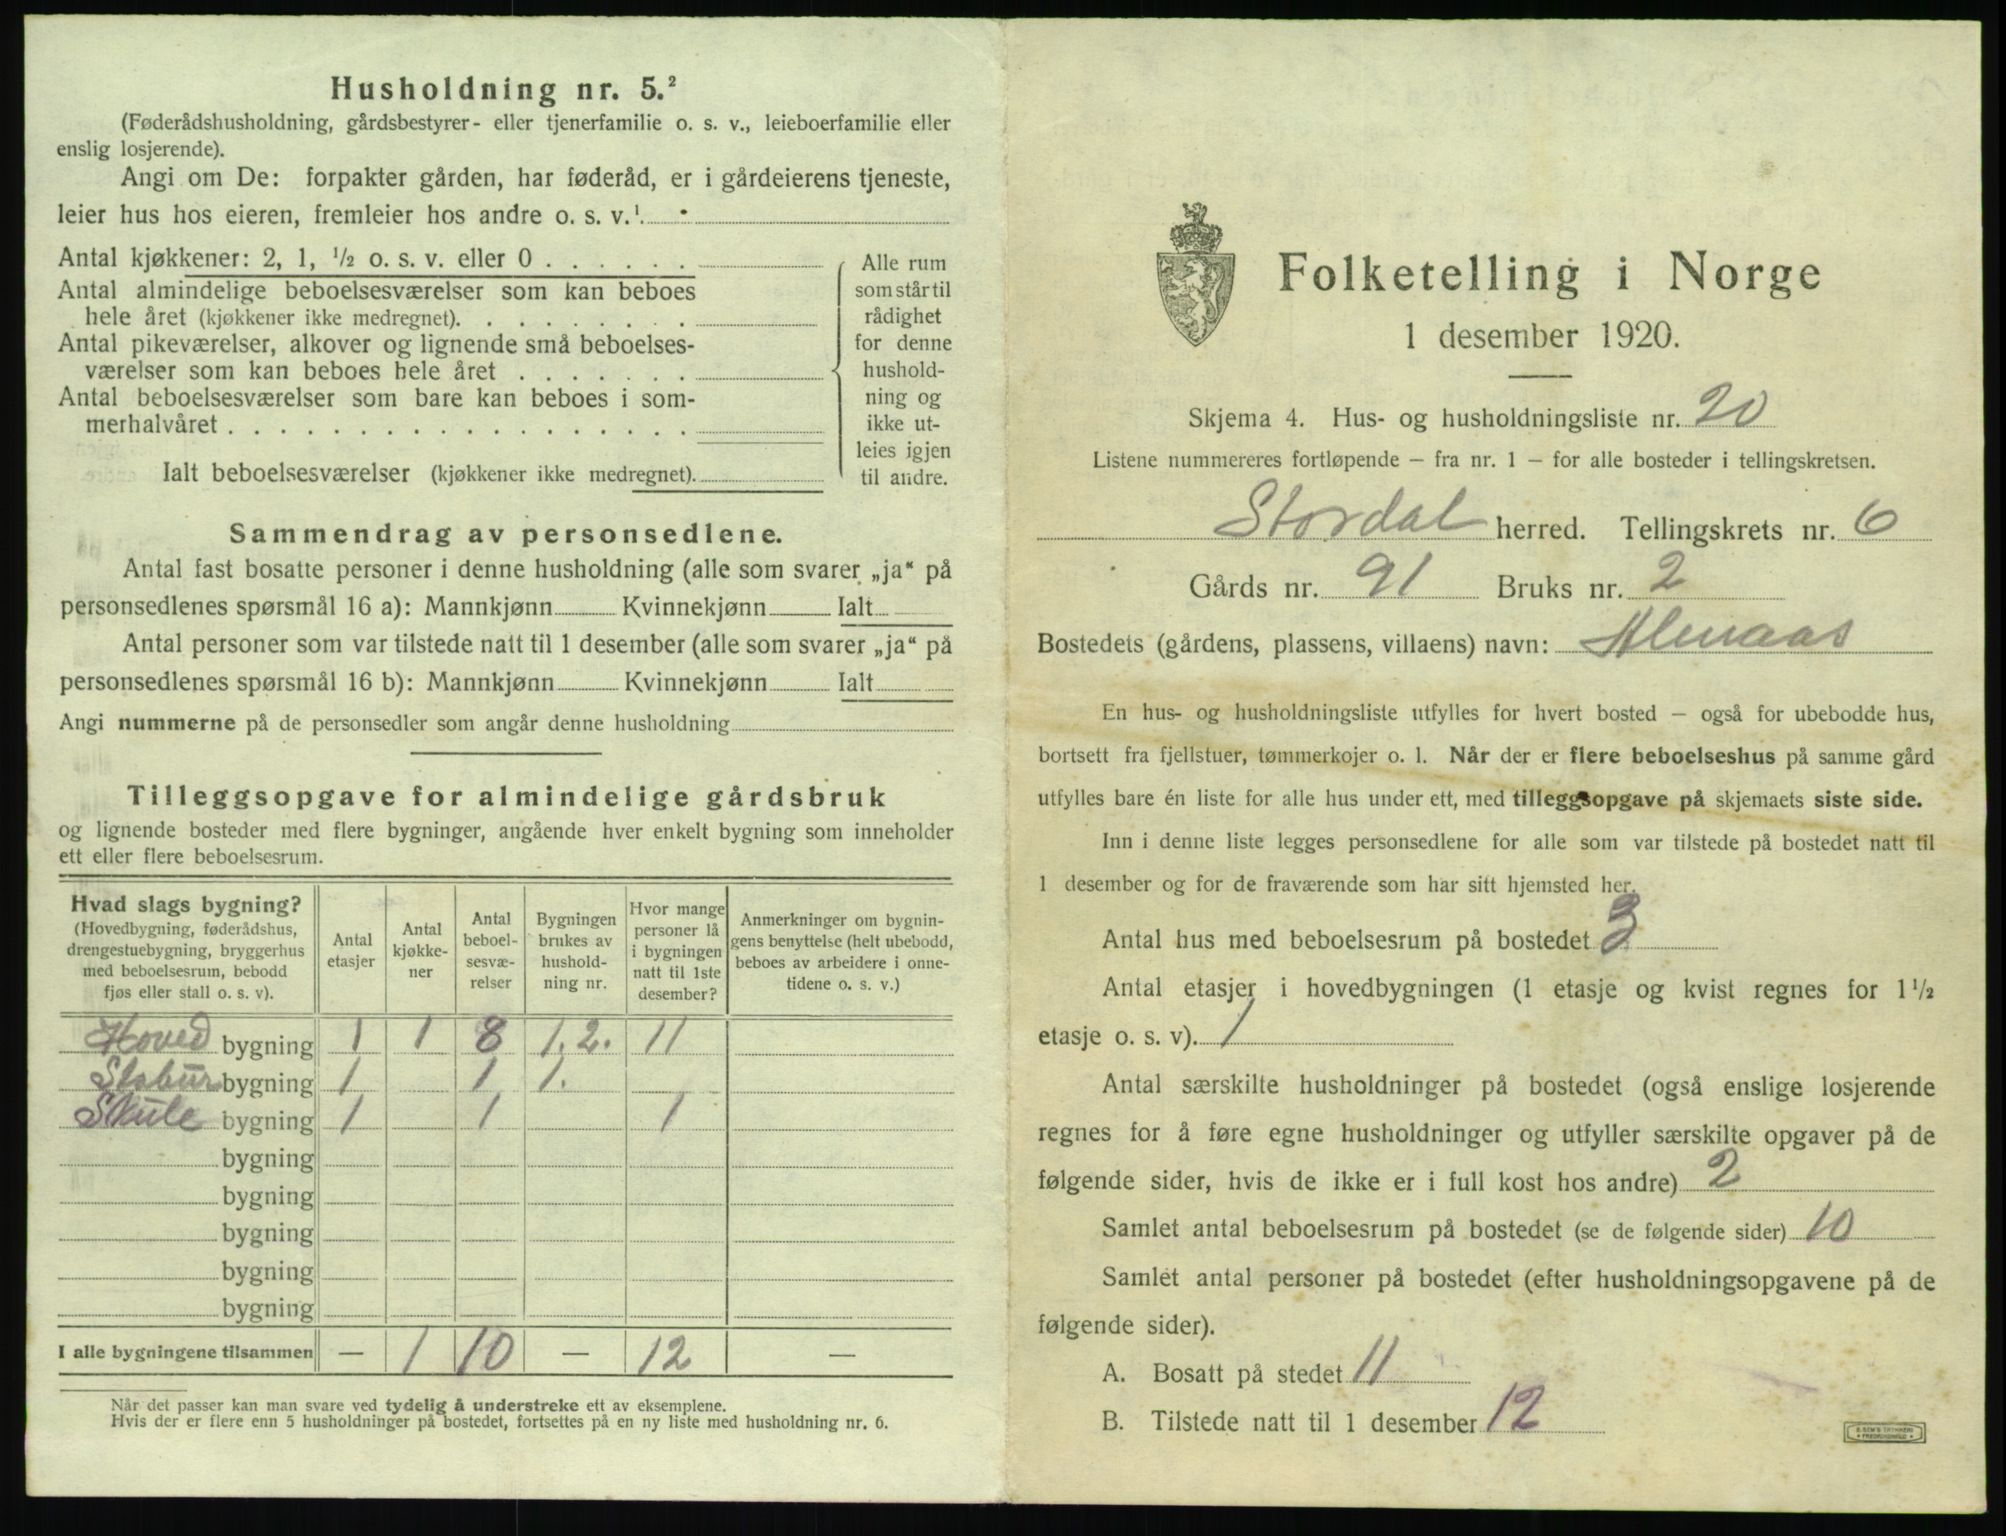 Husholdning nr. 5.²
(Føderådshusholdning, gårdsbestyrer- eller tjenerfamilie o. s. v., leieboerfamilie eller
enslig losjerende).
Angi om De: forpakter gården, har føderåd, er i gårdeierens tjeneste,
leier hus hos eieren, fremleier hos andre o. s. v.¹
Antal kjøkkener: 2, 1, ½ o. s. v. eller 0
Antal almindelige beboelsesværelser som kan beboes
hele året (kjøkkener ikke medregnet)
Antal pikeværelser, alkover og lignende små beboelses-
værelser som kan beboes hele året
Antal beboelsesværelser som bare kan beboes i som-
merhalvåret
Ialt beboelsesværelser (kjøkkener ikke medregnet)
Alle rum
som står til
rådighet
for denne
hushold-
ning og
ikke ut-
leies igjen
til andre.
Sammendrag av personsedlene.
Antal fast bosatte personer i denne husholdning (alle som svarer „ja“ på
personsedlenes spørsmål 16 a): Mannkjønn Kvinnekjønn Ialt
Antal personer som var tilstede natt til 1 desember (alle som svarer „ja“ på
personsedlenes spørsmål 16 b): Mannkjønn Kvinnekjønn Ialt
Angi nummerne på de personsedler som angår denne husholdning
Tilleggsopgave for almindelige gårdsbruk
og lignende bosteder med flere bygninger, angående hver enkelt bygning som inneholder
ett eller flere beboelsesrum.
Hvad slags bygning?
(Hovedbygning, føderådshus,
drengestuebygning, bryggerhus
med beboelsesrum, bebodd
fjøs eller stall o. s. v).
Antal
etasjer
Antal
kjøkke-
ner
Antal
beboel-
sesvæ-
relser
Bygningen
brukes av
hushold-
ning nr.
Hvor mange
personer lå
i bygningen
natt til 1ste
desember?
Anmerkninger om bygnin-
gens benyttelse (helt ubebodd,
beboes av arbeidere i onne-
tidene o. s. v.)
Hoved bygning 1 1 8 1. 2. 11
Stabur bygning 1 1 1.
Skule bygning 1 1 1
bygning
bygning
bygning
bygning
bygning
I alle bygningene tilsammen — 1 10 — 12 —
Når det passer kan man svare ved tydelig å understreke ett av eksemplene.
Hvis der er flere enn 5 husholdninger på bostedet, fortsettes på en ny liste med husholdning nr. 6.
Folketelling i Norge
1 desember 1920.
Skjema 4. Hus- og husholdningsliste nr. 20
Listene nummereres fortløpende – fra nr. 1 – for alle bosteder i tellingskretsen.
Stordal herred. Tellingskrets nr. 6
Gårds nr. 91 Bruks nr. 2
Bostedets (gårdens, plassens, villaens) navn: Almaas
En hus- og husholdningsliste utfylles for hvert bosted – også for ubebodde hus,
bortsett fra fjellstuer, tømmerkojer o. l. Når der er flere beboelseshus på samme gård
utfylles bare én liste for alle hus under ett, med tilleggsopgave på skjemaets siste side.
Inn i denne liste legges personsedlene for alle som var tilstede på bostedet natt til
1 desember og for de fraværende som har sitt hjemsted her.
Antal hus med beboelsesrum på bostedet 3
Antal etasjer i hovedbygningen (1 etasje og kvist regnes for 1½
etasje o. s. v). 1
Antal særskilte husholdninger på bostedet (også enslige losjerende
regnes for å føre egne husholdninger og utfyller særskilte opgaver på de
følgende sider, hvis de ikke er i full kost hos andre) 2
Samlet antal beboelsesrum på bostedet (se de følgende sider) 10
Samlet antal personer på bostedet (efter husholdningsopgavene på de
følgende sider).
A. Bosatt på stedet 11
B. Tilstede natt til 1 desember 12